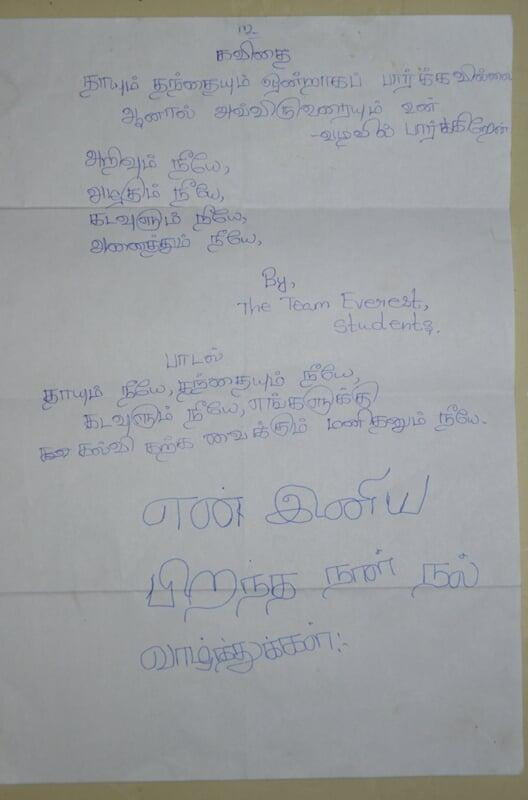 கவிதை
தாயும் தந்தையும் ஒன்றாகப் பார்க்கவில்லை
ஆனால் அவ்விருவரையும் உன்
-வழவில் பார்க்கிறேன்
அறிவும் நீயே,
அழகும் நீயே,
கடவுளும் நீயே,
அனைத்தும் நீயே,
By,
The Team Everest,
Students.
பாடல்
தாயும் நீயே, தந்தையும் நீயே,
கடவுளும் நீயே, எங்களுக்கு
கல்வி கற்க வைக்கும் மனிதனும் நீயே.
என் இனிய
பிறந்த நாள் நல்
வாழ்த்துக்கள்: